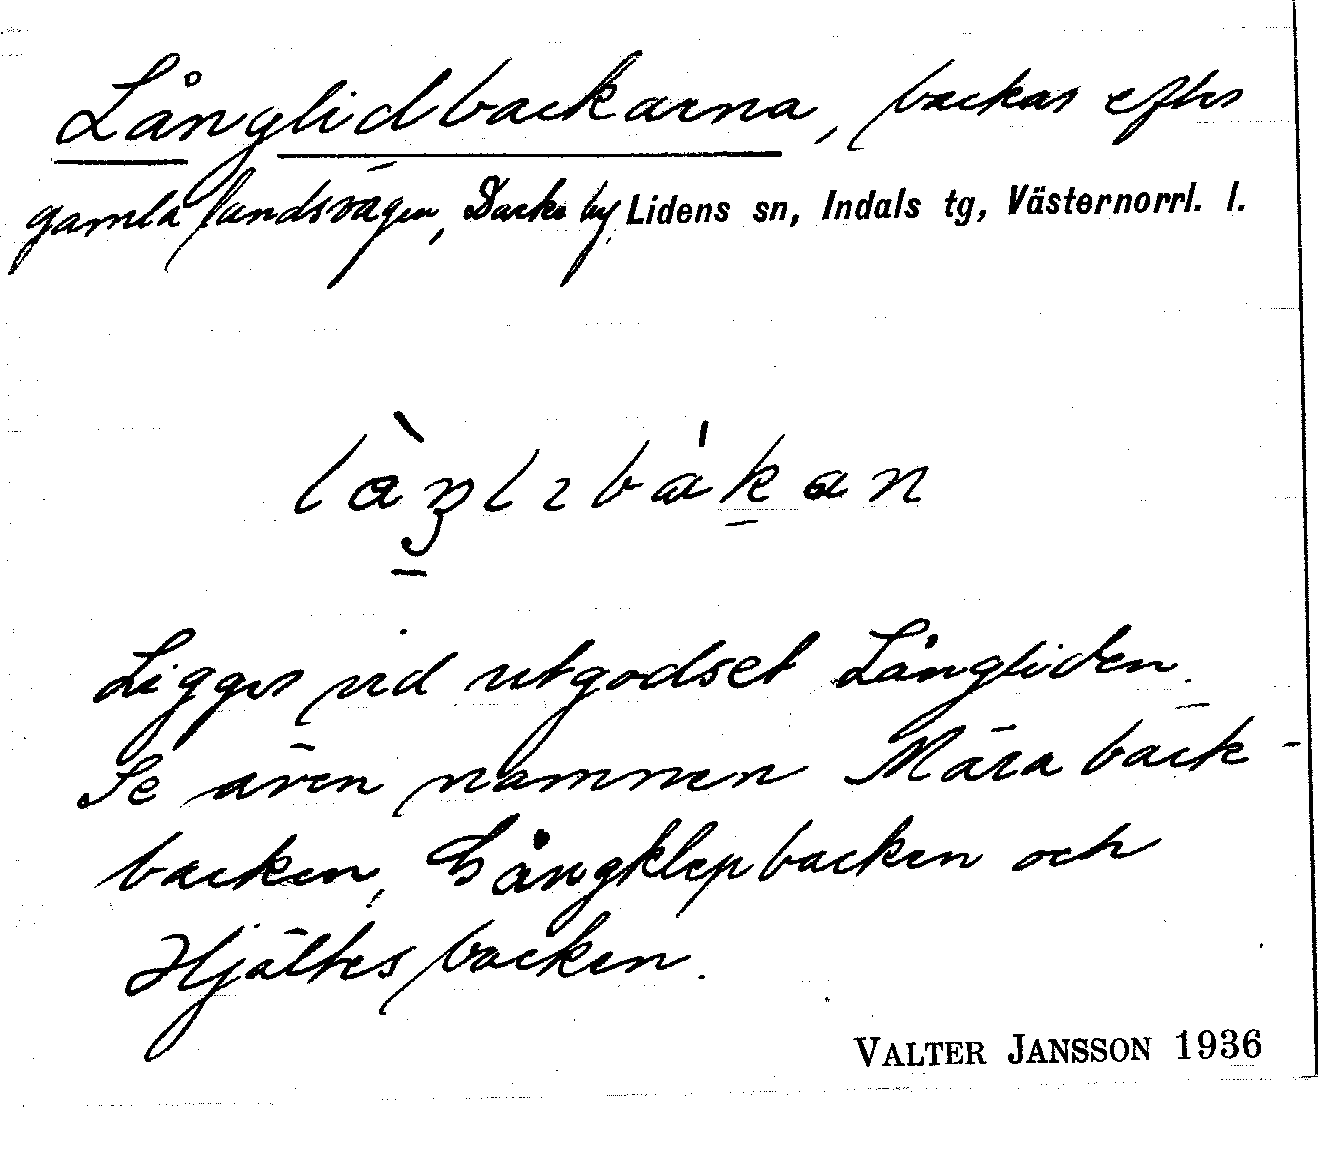 Långlidbackarna, backar efter
gamla landsvägen, Backe by, Lidens sn, Indals tg, Västernorrl. l.
Ligger vid utgodset Långliden.
Se även namnen Märabäck-
backen, Långklepbacken och
Hjältesbacken.
VALTER JANSSON 1936